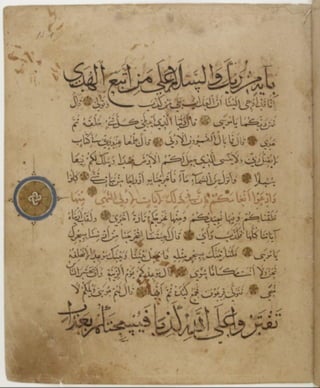 بآية من ربك والسلم على من اتبع الهدى
انا قد اوحي الينا ان العذاب على من كذب وتولى قال
فمن ربكما يا موسى قال ربنا الذي اعطى كل شيء خلقه ثم
هدى قال فما بال القرون الاولى قال علمها عند ربي في كتاب
لا يضل ربي ولا ينسى الذي جعل لكم الارض مهدا وسلك لكم فيها
سبلا وانزل من السماء ماء فاخرجنا به ازواجا من نبات شتى كلوا
وارعوا انعامكم ان في ذلك لآيات لاولي النهى منها
خلقناكم وفيها نعيدكم ومنها نخرجكم تارة اخرى ولقد اريناه
آياتنا كلها فكذب وابى قال اجئتنا لتخرجنا من ارضنا بسحرك
يا موسى فلنأتينك بسحر مثله فاجعل بيننا وبينك موعدا لا نخلفه
نحن ولا انت مكانا سوى قال موعدكم يوم الزينة وان يحشر الناس
ضحى فتولى فرعون فجمع كيده ثم اتى قال لهم موسى ويلكم لا
تفتروا على الله كذبا فيسحتكم بعذاب